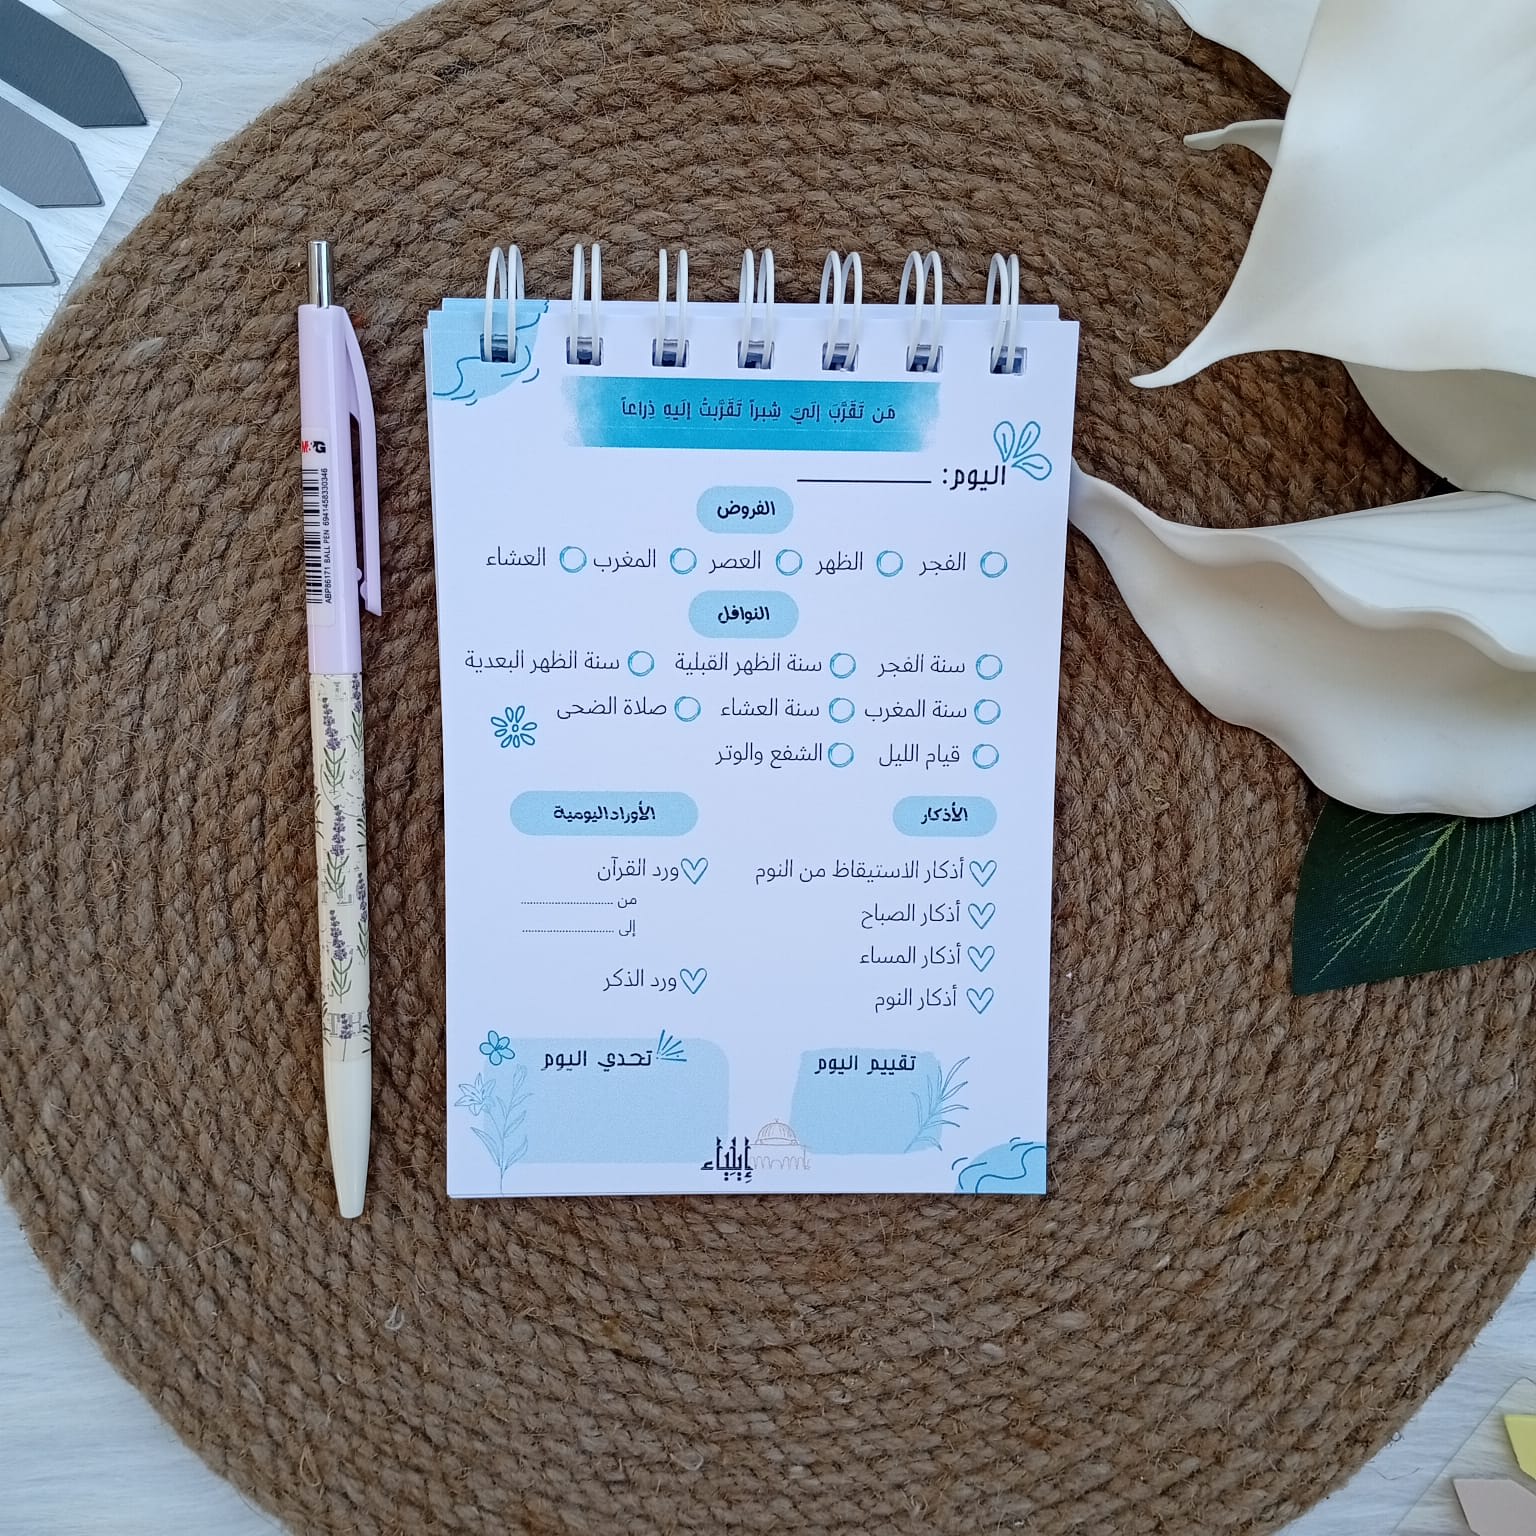 مَن تَقَرَّبَ إلَيَّ شِبراً تَقَرَّبتُ إلَيهِ ذِراعاً
اليوم: ــــــــــــــ
الفروض
الفجر الظهر العصر المغرب العشاء
النوافل
سنة الفجر سنة الظهر القبلية سنة الظهر البعدية
سنة المغرب سنة العشاء صلاة الضحى
قيام الليل الشفع والوتر
الأذكار
أذكار الاستيقاظ من النوم
أذكار الصباح
أذكار المساء
أذكار النوم
الأوراد اليومية
ورد القرآن
من ..............................
إلى ..............................
ورد الذكر
تقييم اليوم
تحدي اليوم
إيلياء
M&G
ABP86171 BALL PEN 6941458330346